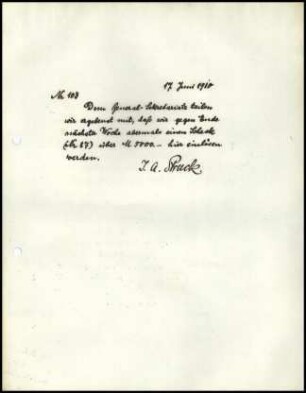 17. Juni 1910
No 103
Dem General-Sekretariate teilen
wir ergebenst mit, daß wir gegen Ende
nächster Woche abermals einen Scheck
(No 27) über M 5000.- hier einlösen
werden.
I. A. Struck.